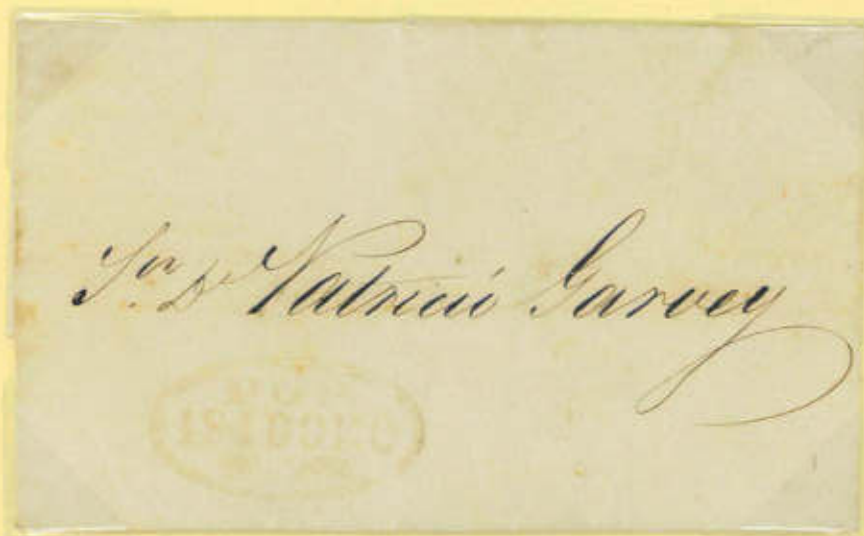 Sor. Dn Patricio Garvey